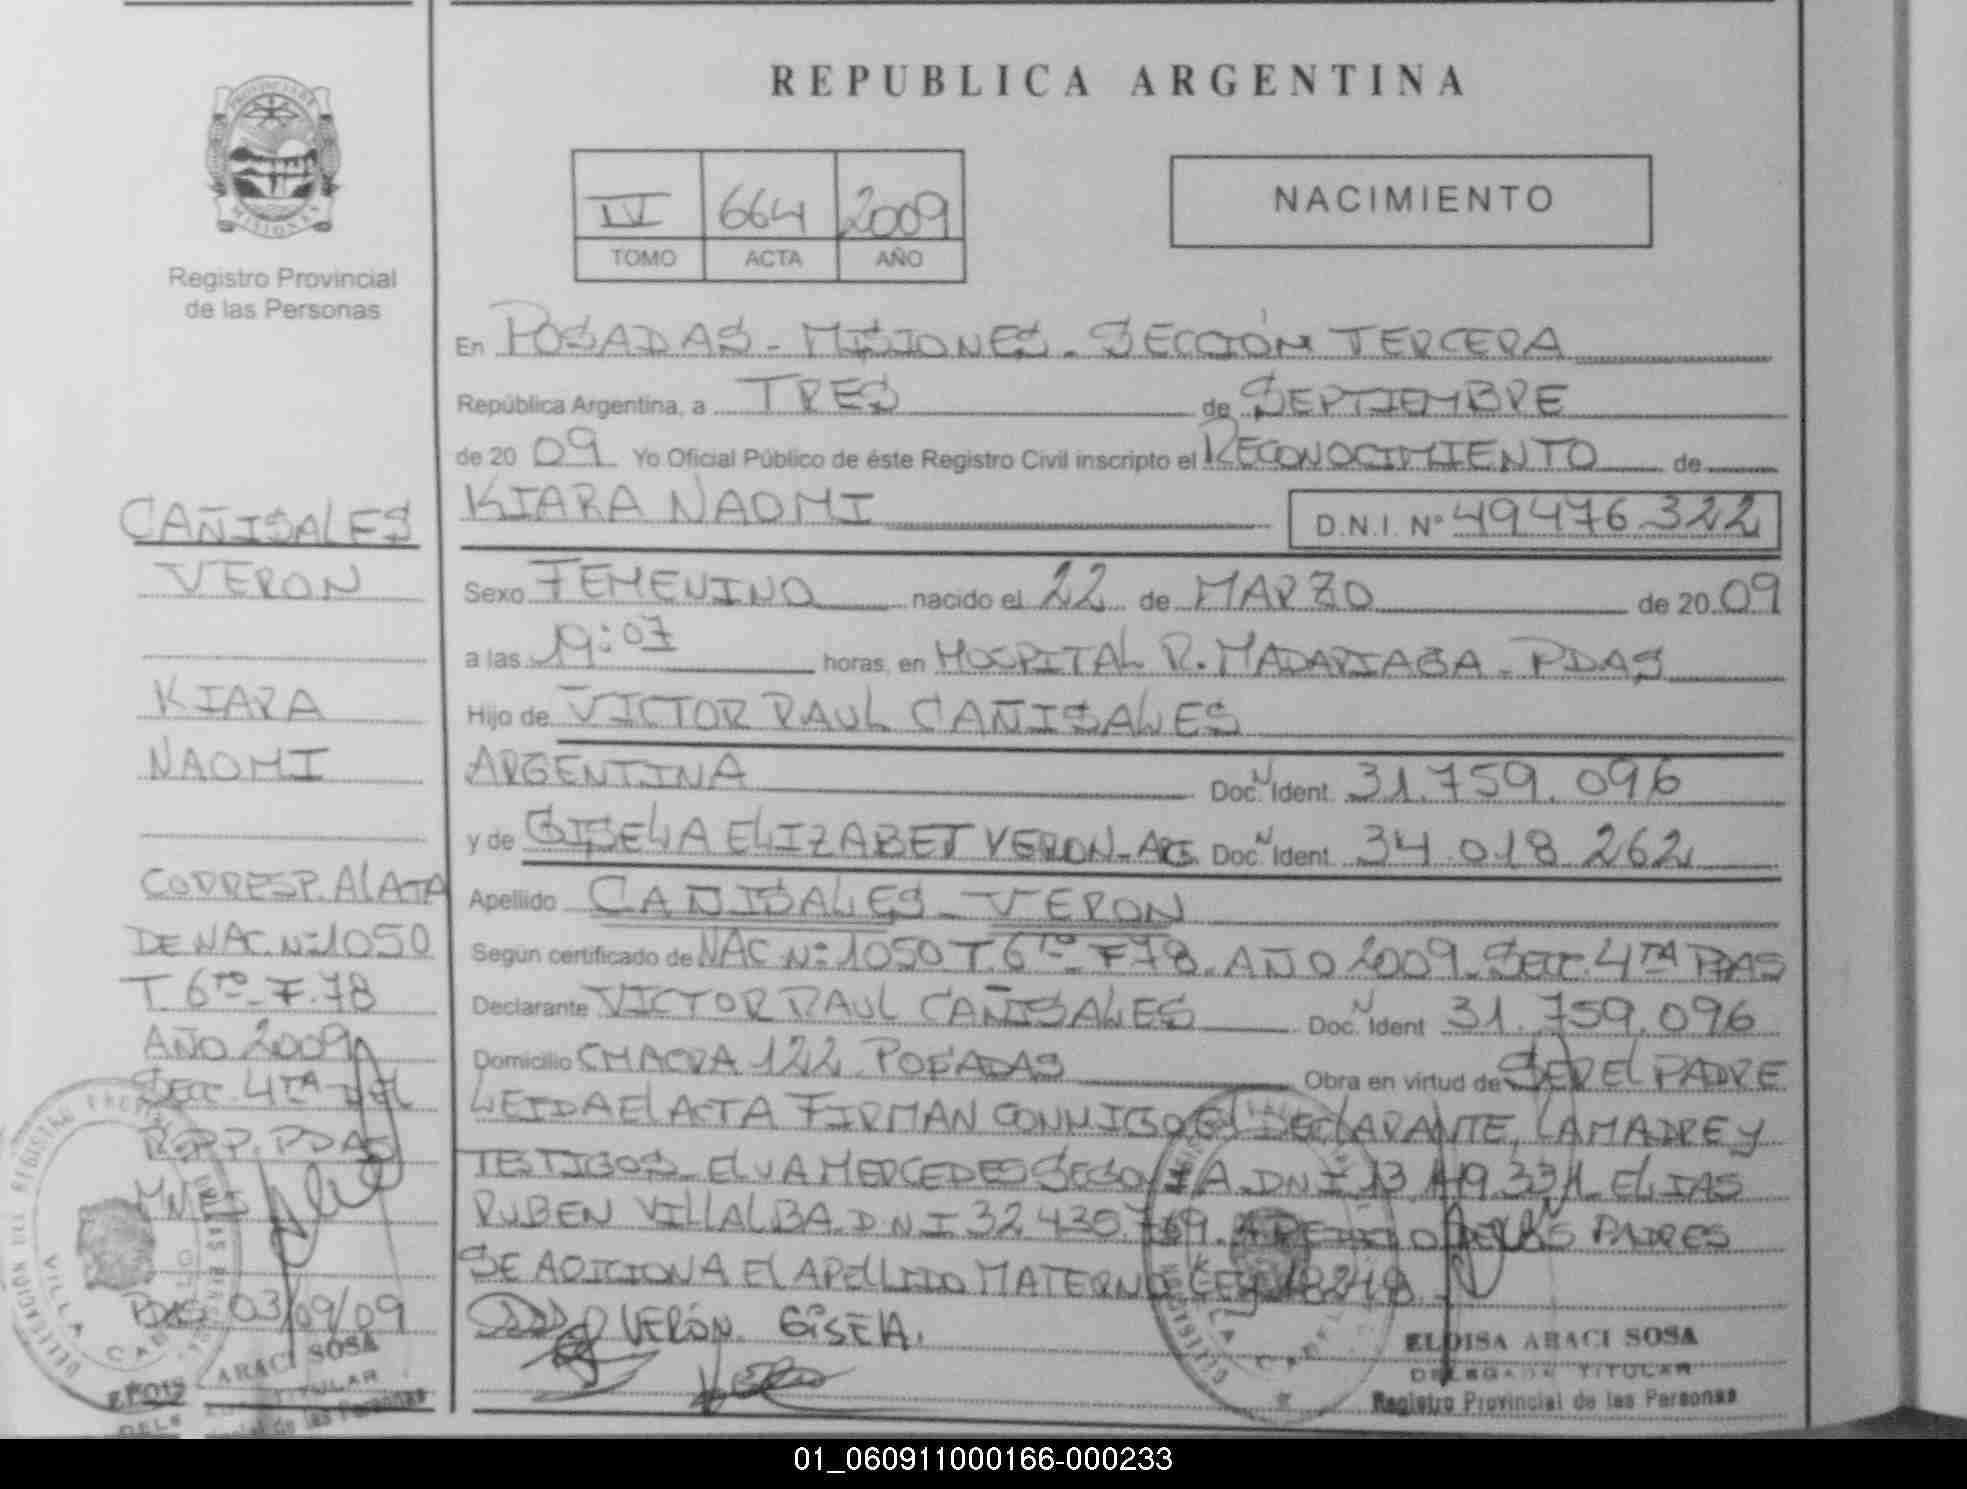 PROVINCIA DE
MISIONES
Registro Provincial
de las Personas
CAÑISALES
VERON
KIARA
NAOMI
CORRESP. AL ACTA
DE NAC. Nº 1050
T. 6TO - F. 78
AÑO 2009
SECC. 4TA DEL
R.P.P. PDAS
MNES
PDAS 03/09/09
ARACI SOSA
TITULAR
de las Personas
REPUBLICA ARGENTINA
IV 664 2009
TOMO ACTA AÑO
NACIMIENTO
En POSADAS - MISIONES - SECCIÓN TERCERA
República Argentina, a TRES de SEPTIEMBRE
de 20 09 Yo Oficial Público de éste Registro Civil inscripto el RECONOCIMIENTO de
KIARA NAOMI D.N.I. Nº 49476.322
Sexo FEMENINO nacido el 22 de MARZO de 20 09
a las 19:07 horas, en HOSPITAL R. MADARIAGA - PDAS
Hijo de VICTOR RAUL CAÑISALES
ARGENTINA Doc. N Ident. 31.759.096
y de GISELA ELIZABET VERON - ARG. Doc. N Ident. 34.018.262
Apellido CAÑISALES - VERON
Según certificado de NAC. Nº 1050 T. 6TO - F 78. AÑO 2009. SECC. 4TA PDAS
Declarante VICTOR RAUL CAÑISALES Doc. N Ident 31.759.096
Domicilio CHACRA 122 POSADAS Obra en virtud de SER EL PADRE
LEIDA EL ACTA FIRMAN CONMIGO EL DECLARANTE, LA MADRE Y
TESTIGOS - ELVA MERCEDES SEGOVIA - DNI 13. 331 - ELIAS
RUBEN VILLALBA. D.N.I. 32.435.769. A PEDIDO DE LOS PADRES
SE ADICIONA EL APELLIDO MATERNO LEY 18248
VERÓN GISELA.
ELOISA ARACI SOSA
DELEGADA TITULAR
Registro Provincial de las Personas
01_060911000166-000233